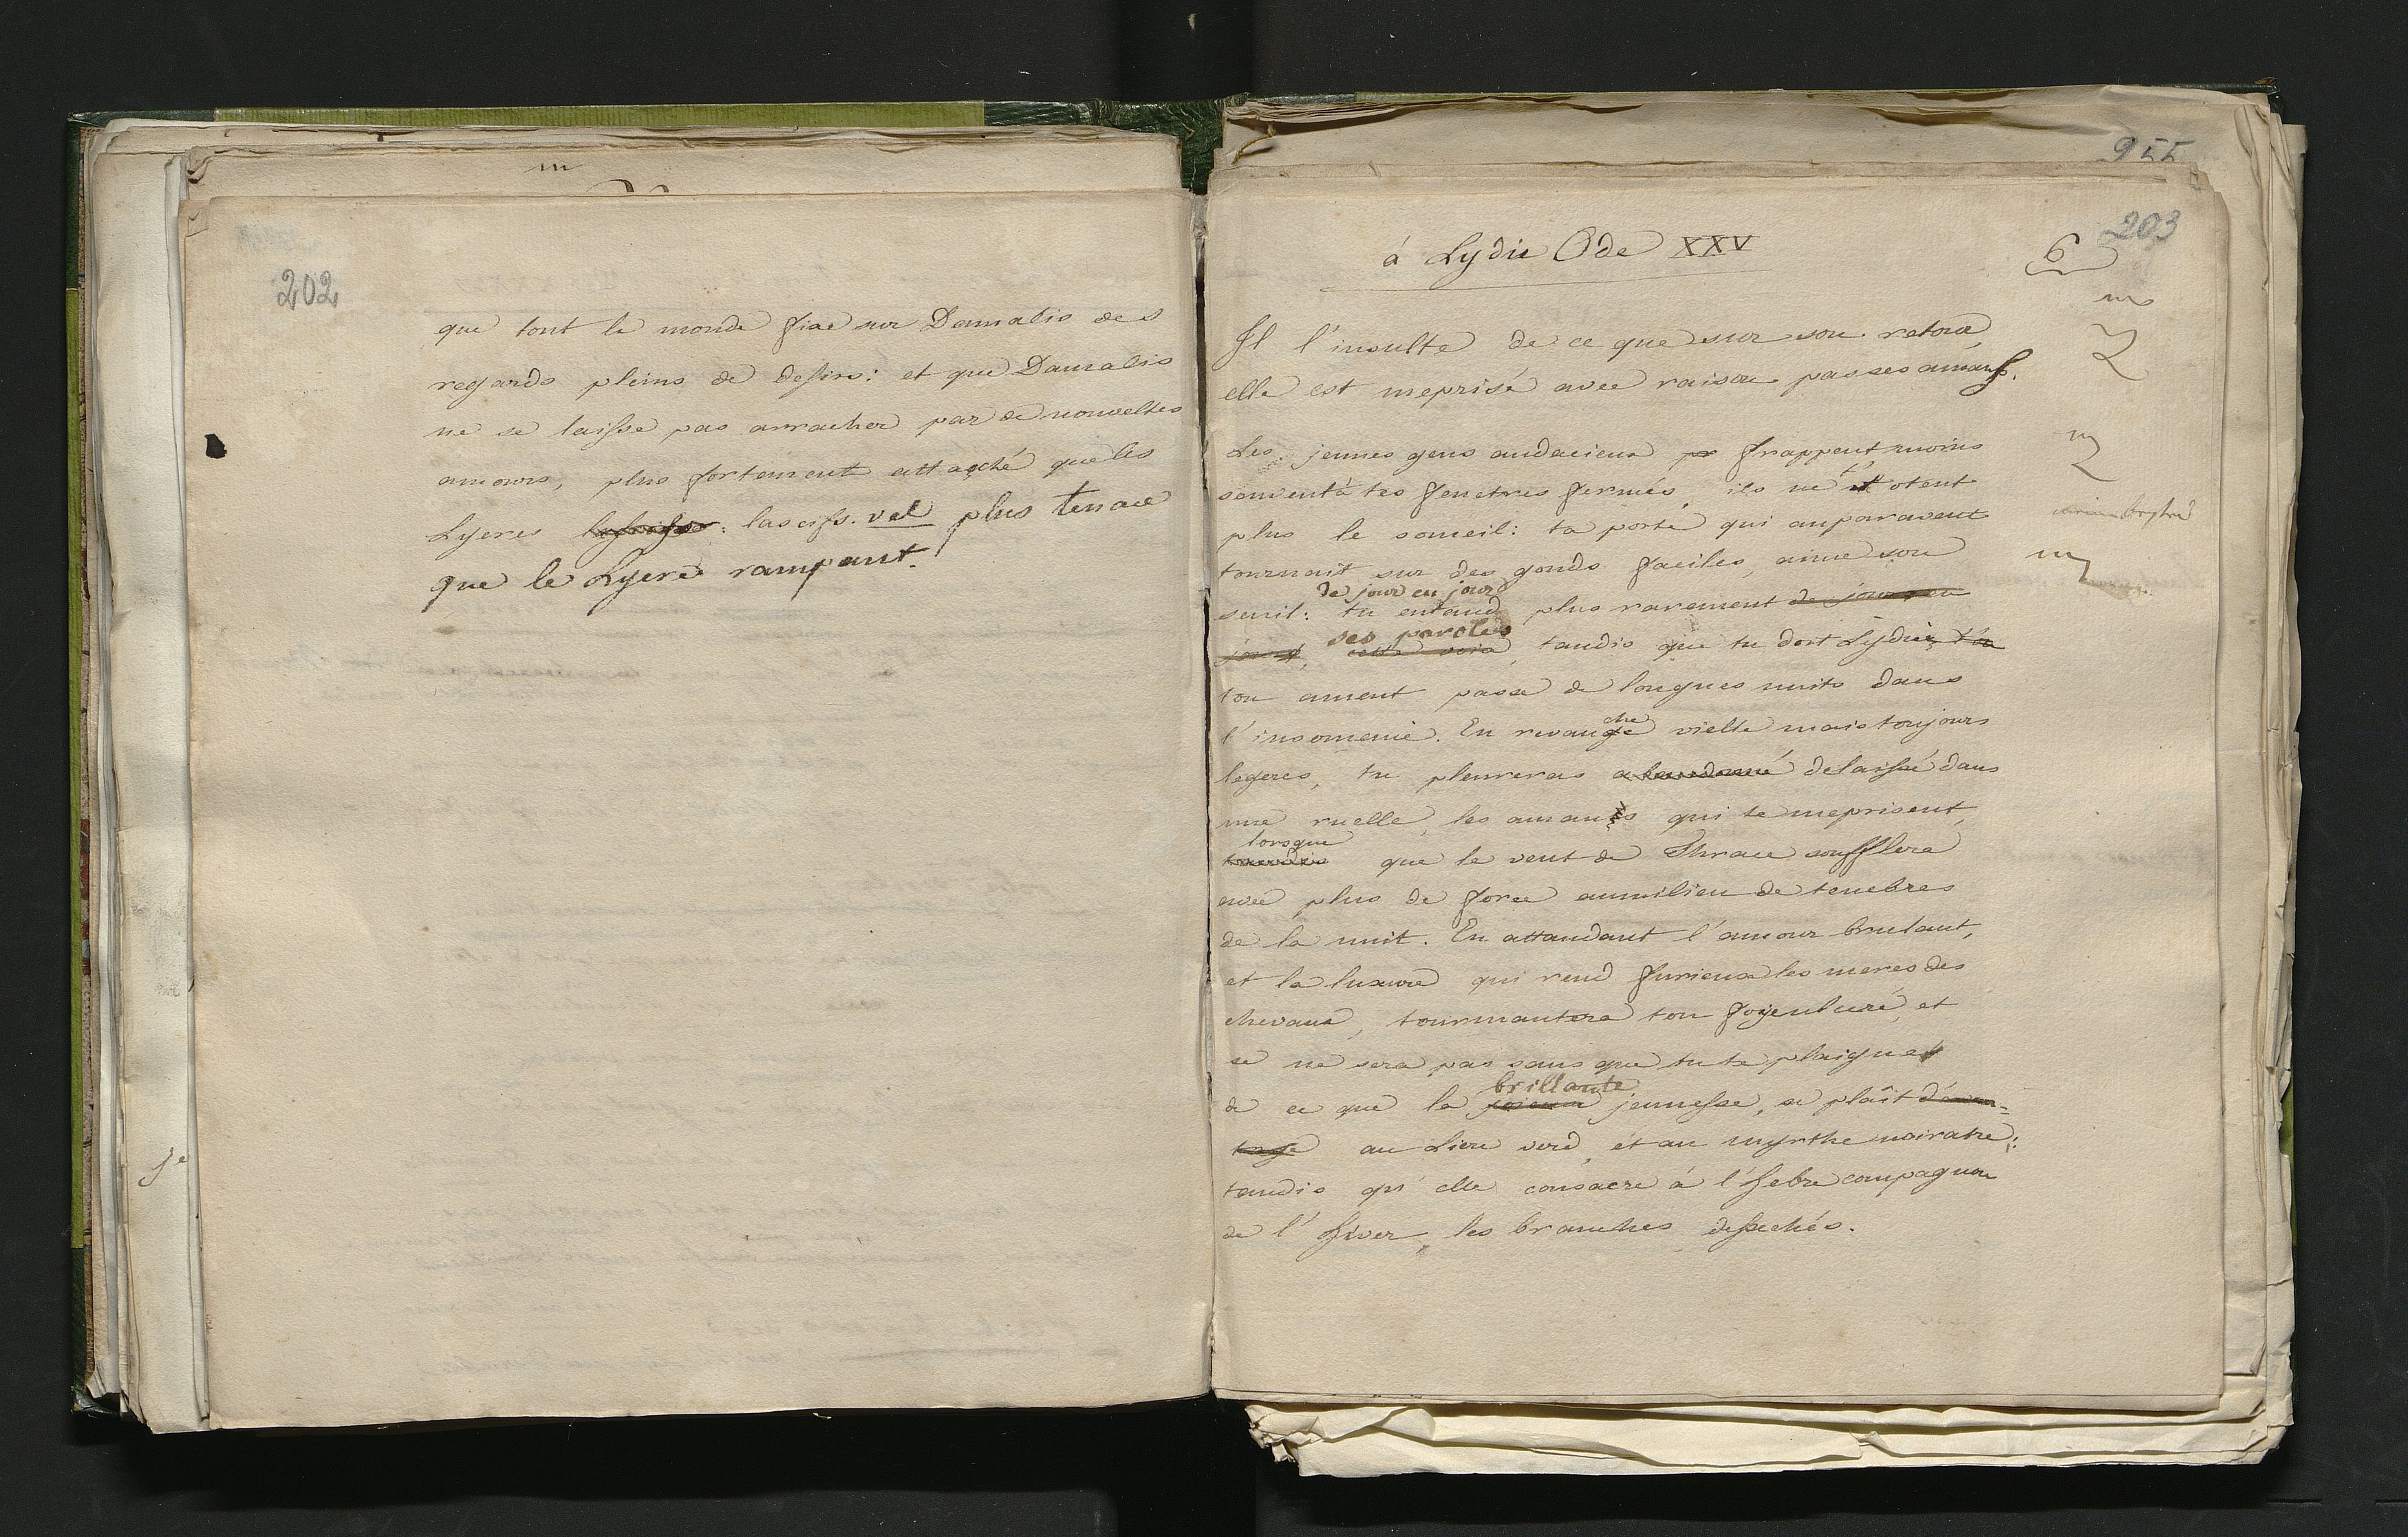 202
que tout le monde fixe sur Damalis des
regards pleins de desirs: et que Damalis
ne se laisse pas arracher par de nouvelles
amours, plus fortement attaché que les
Lyeres : lascifs. vel plus tenace
que le Lyere rampant.
955
203
à Lydie Ode XXV
6
m
Il l'insulte de ce que sur son retour,
elle est meprisé avec raison par ses amans.
Les jeunes gens audacieux pr frappent moins
souvent à tes fenetres fermés, ils ne t'otent
plus le someil: ta porte qui auparavent
tournait sur des gonds faciles, aime son
de jour en jour
seuil: tu entend plus rarement de jour en
ses paroles
jour, cette voix, tandis que tu dort Lydie, ta
ton ament passe de longues nuits dans
l'insomenie. En revanche vielle mais toujours
legeres, tu pleureras abandonné delaissé dans
une ruelle, les amants qui te meprisent,
lorsque
que le vent de Thrace soufflera
avec plus de force aumilieu de tenebres
de la nuit. En attandant l'amour brulant,
et la luxure qui rend furieux les meres des
chevaux, tourmantera ton foye ulceré, et
se ne sera pas sans que tu te plaignes
brillante
de ce que la joieuse jeunesse, se plaît d'avan-
tage au Liere verd, et au myrthe noiratre;
tandis qu'elle consacre à l'hebre compagnon
de l'hiver, les branches dessechés.